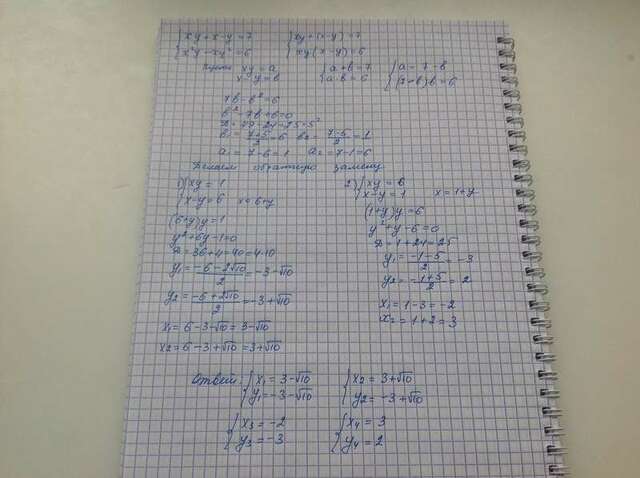 {xy + x - y = 7 {xy + (x - y) = 7
{x²y - xy² = 6 {xy(x - y) = 6
Пусть xy = a {a + b = 7 {a = 7 - b
x - y = b {a·b = 6 {(7 - b)b = 6
7b - b² = 6
b² - 7b + 6 = 0
D = 49 - 24 = 25 = 5²
b₁ = (7+5)/2 = 6 b₂ = (7-5)/2 = 1
a₁ = 7 - 6 = 1 a₂ = 7 - 1 = 6
Делаем обратную замену
1) {xy = 1
{x - y = 6 x = 6 + y
(6 + y)y = 1
y² + 6y - 1 = 0
D = 36 + 4 = 40 = 4·10
y₁ = (-6 - 2√10)/2 = -3 - √10
y₂ = (-6 + 2√10)/2 = -3 + √10
x₁ = 6 - 3 - √10 = 3 - √10
x₂ = 6 - 3 + √10 = 3 + √10
2) {xy = 6
{x - y = 1 x = 1 + y
(1 + y)y = 6
y² + y - 6 = 0
D = 1 + 24 = 25
y₁ = (-1 - 5)/2 = -3
y₂ = (-1 + 5)/2 = 2
x₁ = 1 - 3 = -2
x₂ = 1 + 2 = 3
Ответ: {x₁ = 3 - √10 {x₂ = 3 + √10
{y₁ = -3 - √10 {y₂ = -3 + √10
{x₃ = -2 {x₄ = 3
{y₃ = -3 {y₄ = 2